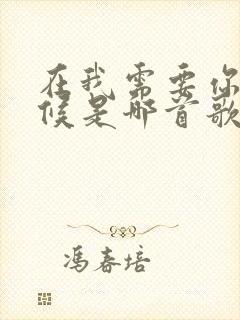 在我需要你
候是哪首歌
冯春培